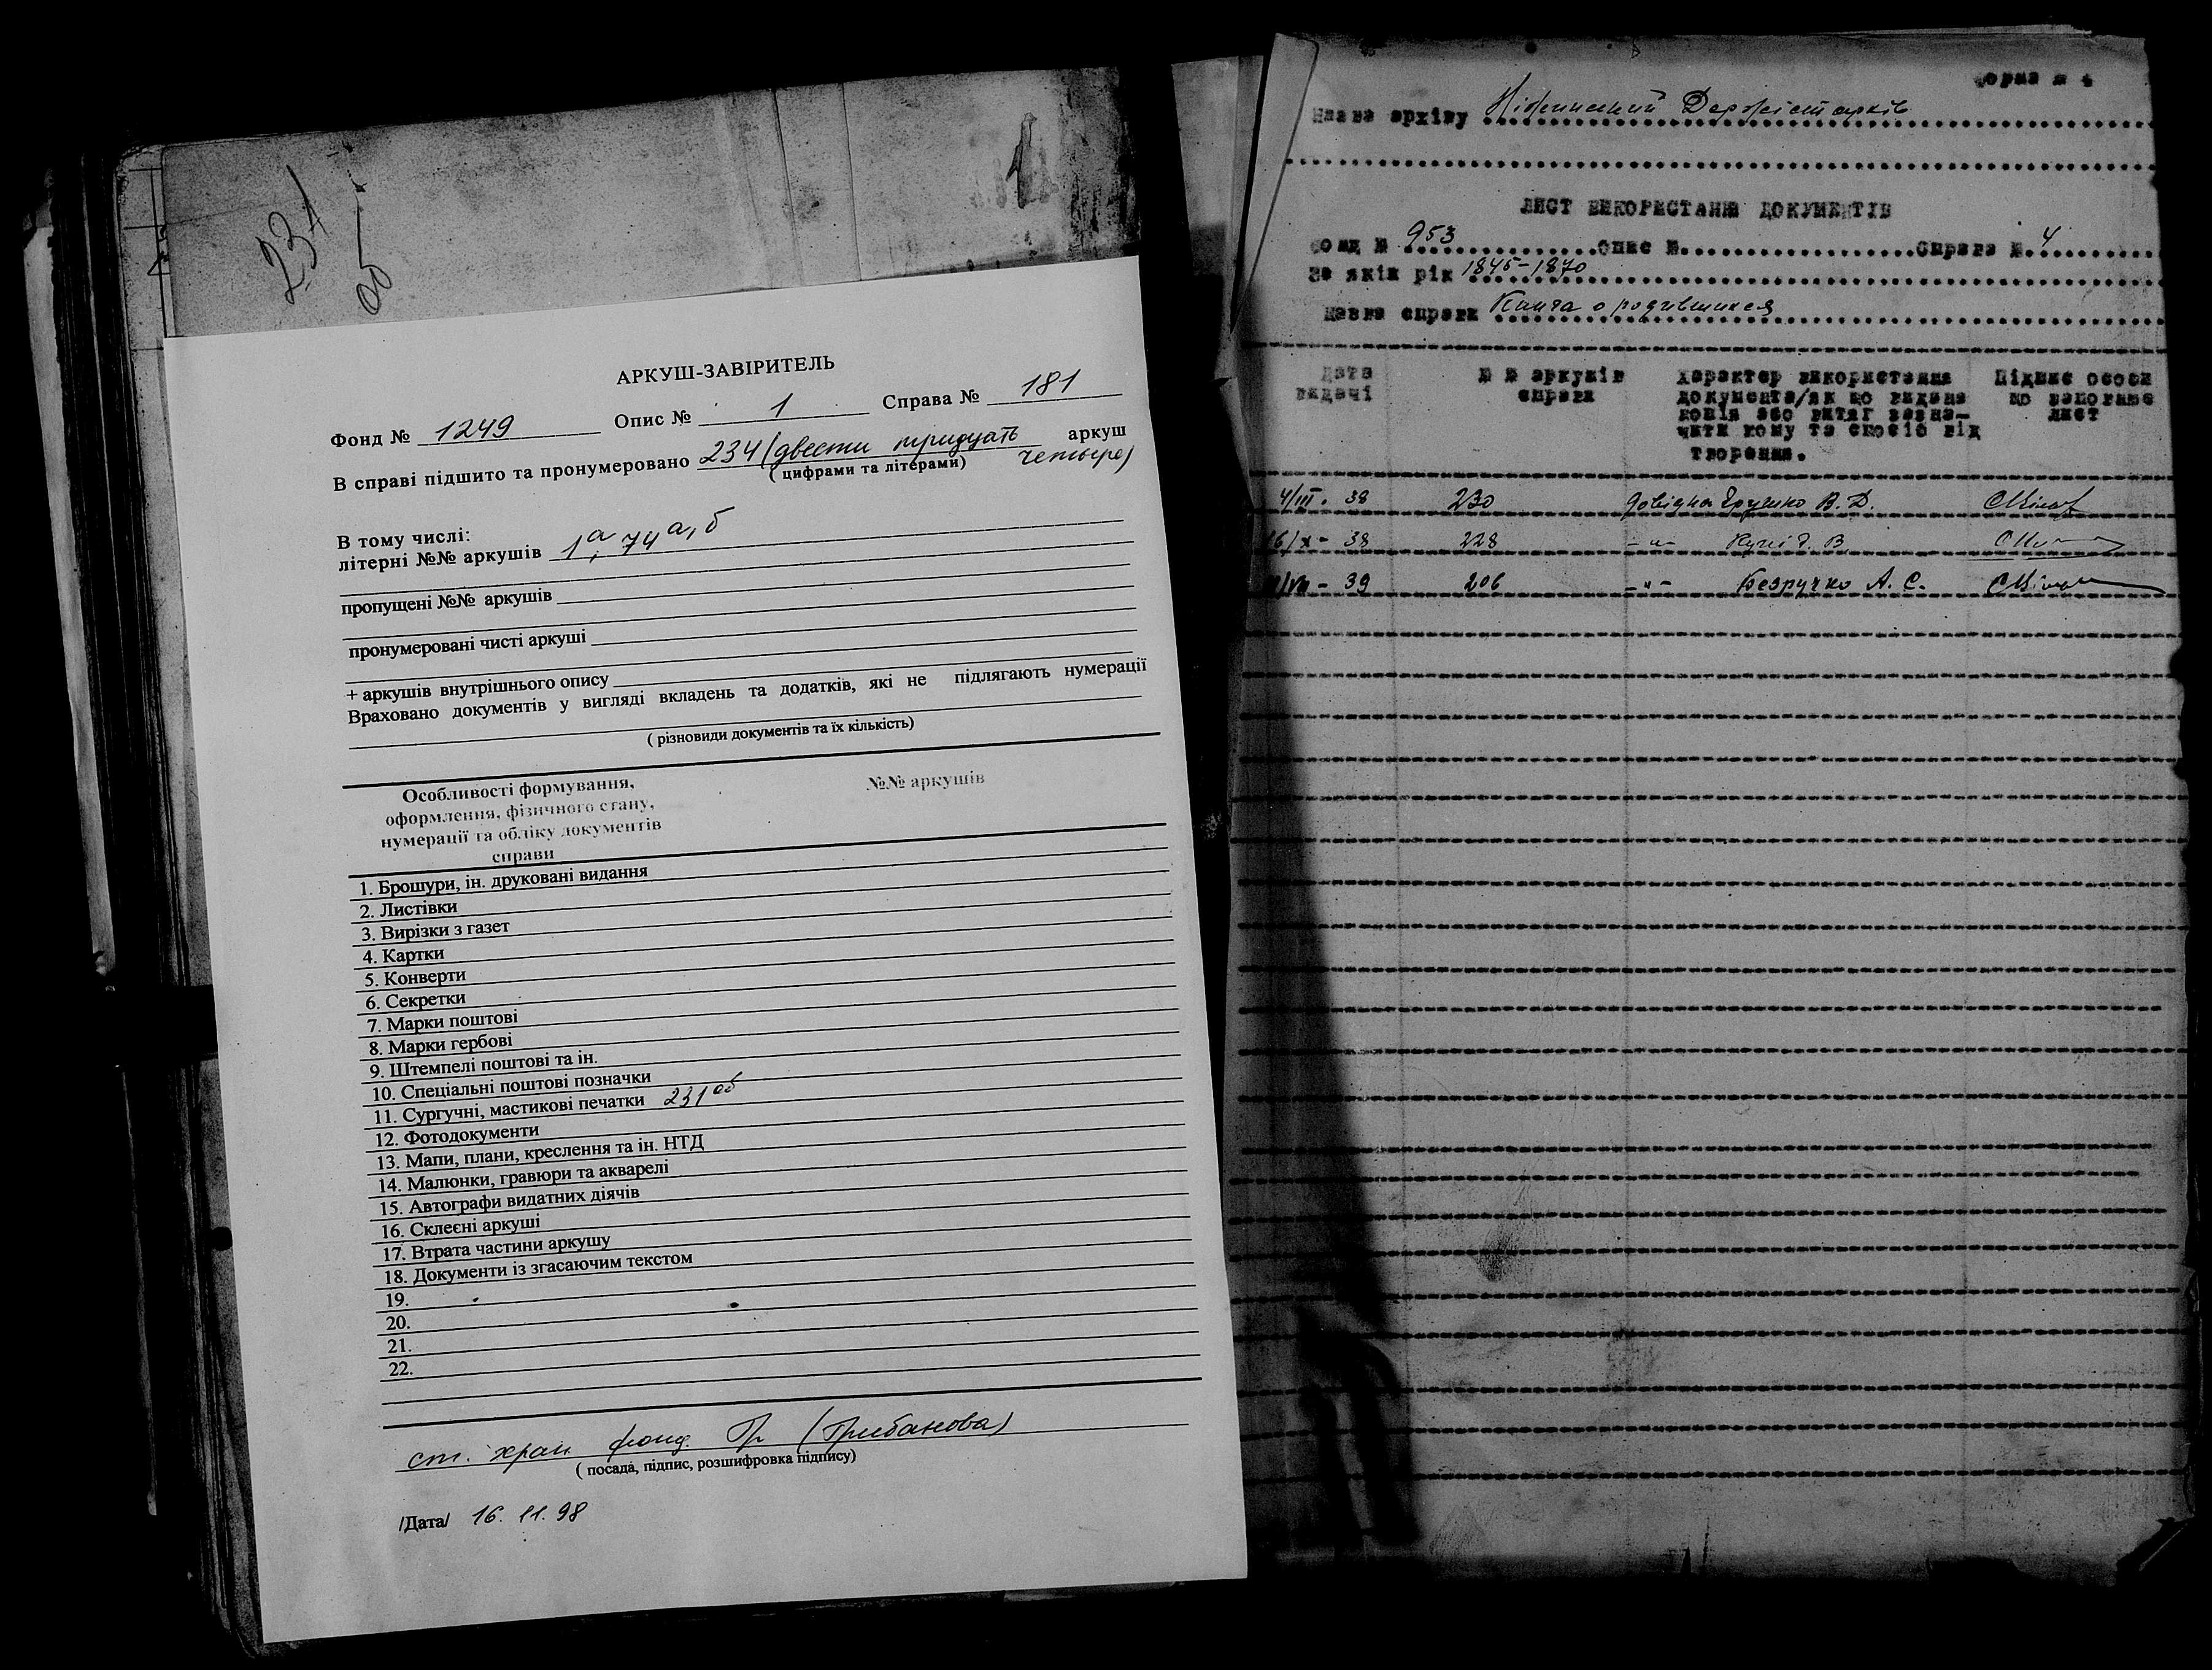 231
об
АРКУШ-ЗАВІРИТЕЛЬ
Фонд № 1249 Опис № 1 Справа № 181
В справі підшито та пронумеровано 234 (двести тридцать аркуш
(цифрами та літерами) четыре)
В тому числі:
літерні №№ аркушів 1а, 74а,б
пропущені №№ аркушів
пронумеровані чисті аркуші
+ аркушів внутрішнього опису
Враховано документів у вигляді вкладень та додатків, які не підлягають нумерації
( різновиди документів та їх кількість)
Особливості формування, №№ аркушів
оформлення, фізичного стану,
нумерації та обліку документів
справи
1. Брошури, ін. друковані видання
2. Листівки
3. Вирізки з газет
4. Картки
5. Конверти
6. Секретки
7. Марки поштові
8. Марки гербові
9. Штемпелі поштові та ін.
10. Спеціальні поштові позначки
11. Сургучні, мастикові печатки 231об
12. Фотодокументи
13. Мапи, плани, креслення та ін. НТД
14. Малюнки, гравюри та акварелі
15. Автографи видатних діячів
16. Склеєні аркуші
17. Втрата частини аркушу
18. Документи із згасаючим текстом
19.
20.
21.
22.
ст. хран. фонд. Гр (Грибанова)
( посада, підпис, розшифровка підпису)
/Дата/ 16. 11. 98
Форма № 4
Назва архіву Ніжинський Держістархів
ЛИСТ ВИКОРИСТАННЯ ДОКУМЕНТІВ
Фонд № 953 Опис № Справа № 4
За який рік 1845-1870
Назва справи Книга о родившихся
Дата №№ аркушів Характер використання Підпис особи
видачі справи документа/як що видана що заповнює
копія або витяг зазна- лист
чити кому та спосіб від
творення.
4/III. 38 230 довідка Грушко В. Д.
16/X - 38 228 -"-
39 206 -"- Безручко А. С.